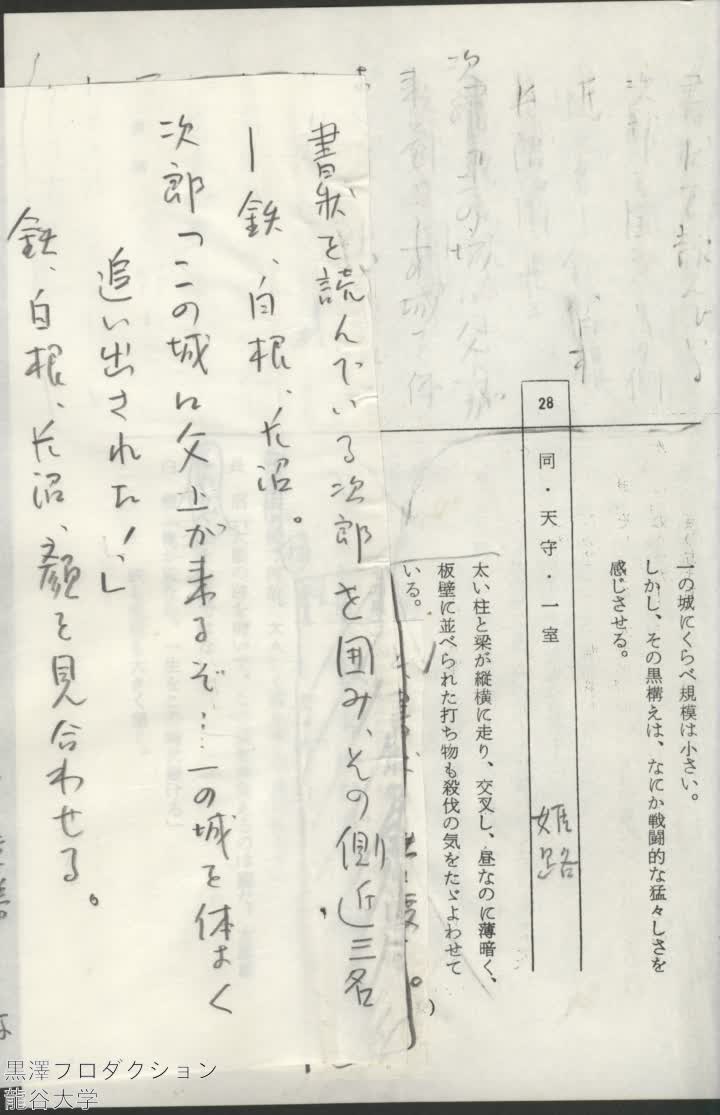 一の城にくらべ規模は小さい。
しかし、その黒構えは、なにか戦闘的な猛々しさを
感じさせる。
28 同・天守・一室
姫路
太い柱と梁が縦横に走り、交叉し、昼なのに薄暗く、
板壁に並べられた打ち物も殺伐の気をたゞよわせて
いる。
書状を読んでいる次郎を囲み、その側近三名
ー鉄、白根、長沼。
次郎「この城に父上が来るぞ…一の城を体よく
追い出された！」
鉄、白根、長沼、顔を見合わせる。
黒澤プロダクション
龍谷大学